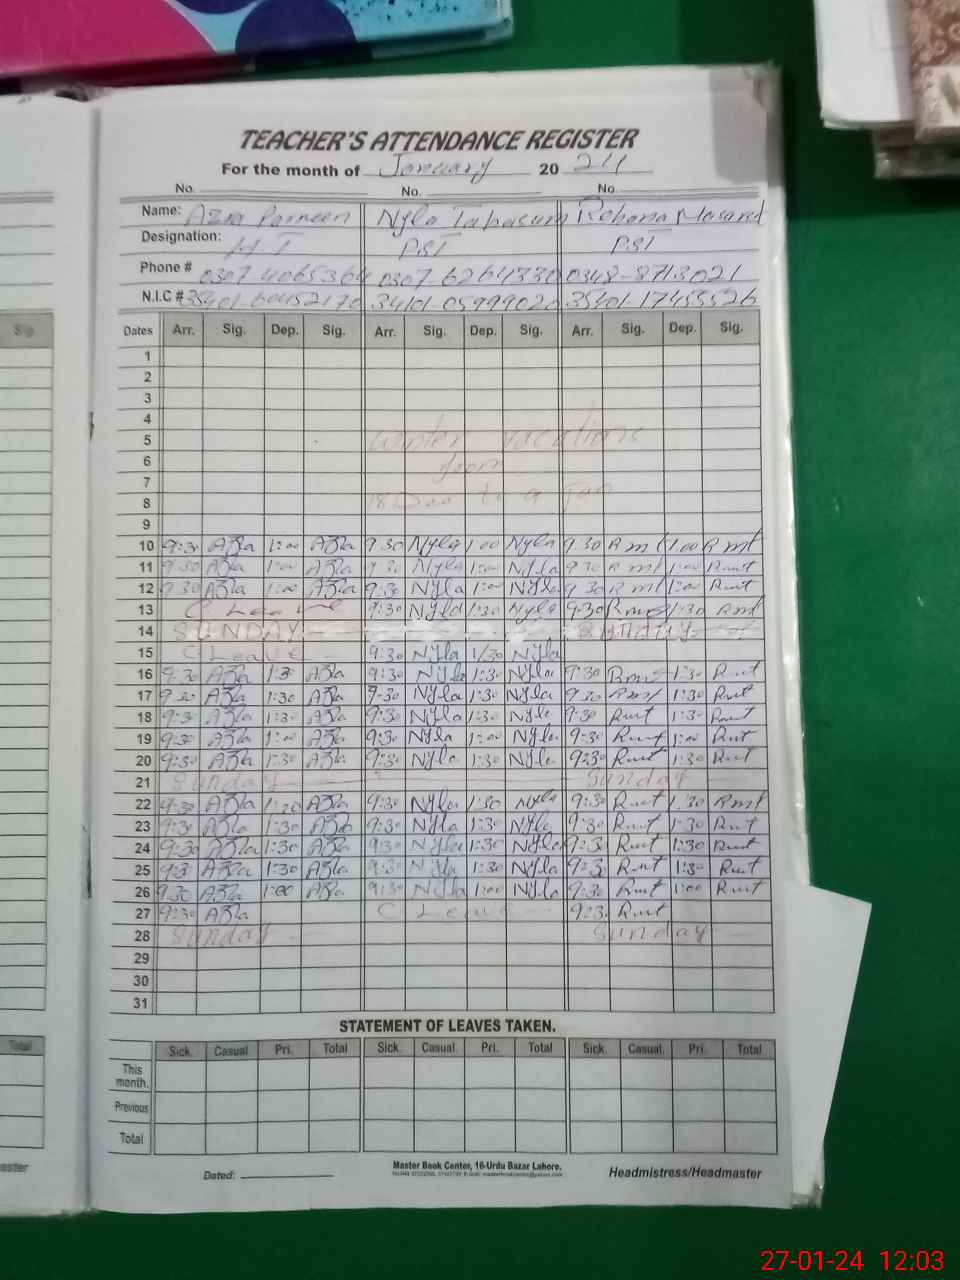 TEACHER'S ATTENDANCE REGISTER
For the month of January 20 24
No. No. No.
Name: Azra Parveen Nyla Tabasum Rehana
Designation: H.T PST PST
Phone # 0307-4065364 0307-6264330 0348-8713021
N.I.C #
Dates Arr. Sig. Dep. Sig. Arr. Sig. Dep. Sig. Arr. Sig. Dep. Sig.
1
2
3
4
5 winter vacations
6 from
7
8 18 Dec to 9 Jan
9
10 9:30 Azra 1:00 Azra 9:30 Nyla 1:00 Nyla 9:30 Rmt 1:00 Rmt
11 9:30 Azra 1:00 Azra 9:30 Nyla 1:00 Nyla 9:30 Rmt 1:00 Rmt
12 9:30 Azra 1:00 Azra 9:30 Nyla 1:00 Nyla 9:30 Rmt 1:00 Rmt
13 C Leave 9:30 Nyla 1:30 Nyla 9:30 Rmt 1:30 Rmt
14 SUNDAY Sunday
15 C Leave 9:30 Nyla 1:30 Nyla
16 9:30 Azra 1:30 Azra 9:30 Nyla 1:30 Nyla 9:30 Rmt 1:30 Rmt
17 9:30 Azra 1:30 Azra 9:30 Nyla 1:30 Nyla 9:30 Rmt 1:30 Rmt
18 9:30 Azra 1:30 Azra 9:30 Nyla 1:30 Nyla 9:30 Rmt 1:30 Rmt
19 9:30 Azra 1:00 Azra 9:30 Nyla 1:00 Nyla 9:30 Rmt 1:00 Rmt
20 9:30 Azra 1:30 Azra 9:30 Nyla 1:30 Nyla 9:30 Rmt 1:30 Rmt
21 Sunday Sunday
22 9:30 Azra 1:30 Azra 9:30 Nyla 1:30 Nyla 9:30 Rmt 1:30 Rmt
23 9:30 Azra 1:30 Azra 9:30 Nyla 1:30 Nyla 9:30 Rmt 1:30 Rmt
24 9:30 Azra 1:30 Azra 9:30 Nyla 1:30 Nyla 9:30 Rmt 1:30 Rmt
25 9:30 Azra 1:30 Azra 9:30 Nyla 1:30 Nyla 9:30 Rmt 1:30 Rmt
26 9:30 Azra 1:00 Azra 9:30 Nyla 1:00 Nyla 9:30 Rmt 1:00 Rmt
27 9:30 Azra C Leave 9:30 Rmt
28 Sunday Sunday
29
30
31
STATEMENT OF LEAVES TAKEN.
Sick. Casual. Pri. Total Sick. Casual. Pri. Total Sick. Casual. Pri. Total
This month.
Previous
Total
Dated: Master Book Center, 16-Urdu Bazar Lahore. Headmistress/Headmaster
27-01-24 12:03